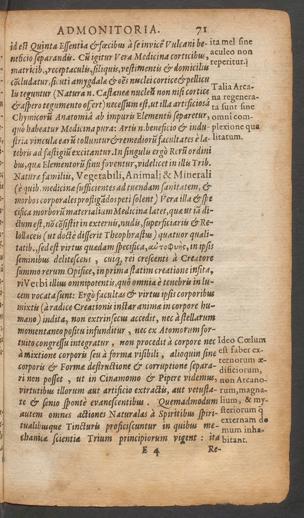 ADMONITORIA. 71
id est Quinta Essentia & fæcibus à se invicẽ Vulcani be-
neficio separandis. Cũ igitur Vera Medicina corticibus,
matricib., receptaculis, siliquis, vestimentis & domiciliis
cõcludatur, sicuti amygdala & oẽs nuclei cortice & pellicu
lis teguntur (Natura n. Castaneæ nucleũ non nisi cortice
& aspero tegumento offert) necessum est, ut illa artificiosâ
Chymicorũ Anatomiâ ab impuris Elementis separetur,
quò habeatur Medicina pura: Artis n. beneficio & indu-
stria vincula earũ tolluntur & remediorũ facultates è la-
tebris ad fastigiũ excitantur. In singulis ergò Rerũ ordini
bus, qua Elementorũ sinu foventur, videlicet in illis Trib.
Naturæ familiis, Vegetabili, Animali & Minerali
(è quib. medicinæ sufficientes ad tuendam sanitatem, &
morbos corporales profligãdos peti solent) Vera illa & spe
cifica morborũ materialium Medicina latet, quæ ut iã di-
ctum est, nõ cõsistit in externis, nudis, superficiariis & Re-
lollaceis (ut doctè disserit Theophrastus) quatuor quali-
tatib., sed est virtus quædam specifica, αὐτοφυὴς, in ipsis
seminibus delitescens, cuiq; rei crescenti à Creatore
summo rerum Opifice, in prima statim creatione insita,
vi Verbi illius omnipotentis, quò omnia è tenebris in lu-
cem vocata sunt: Ergò facultas & virtus ipsis corporibus
mixtis (à radice Creationis instar anima in corpore hu-
mano) indita, non extrinsecu accedit, nec à stellarum
momentaneo positu infunditur, nec ex Atomorum for-
tuito congressu integratur, non procedit à corpore nec
à mixtione corporis seu à forma visibili, alioquin sine
corporis & Forma destructione & corruptione separa-
ri non posset, ut in Cinamomo & Pipere videmus,
virtutibus illorum aut artificio extractis, aut vetusta-
te & senio spontè evanescentibus. Quemadmodum
autem omnes actiones Naturales à Spiritibus spiri-
tualibusque Tincturis proficiscuntur in quibus me-
chanicæ scientiæ Trium principiorum vigent: ita
E 4 Re-
ita mel sine
aculeo non
reperitur.)
Talia Arca-
na regenera-
ta sunt sine
omni com-
plexione qua
litatum.
Ideo Cœlum
est faber ex-
ternorum æ-
dificiorum,
non Arcano-
rum, magna-
lium, & my-
steriorum q̃
externam do
mum inha-
bitant.